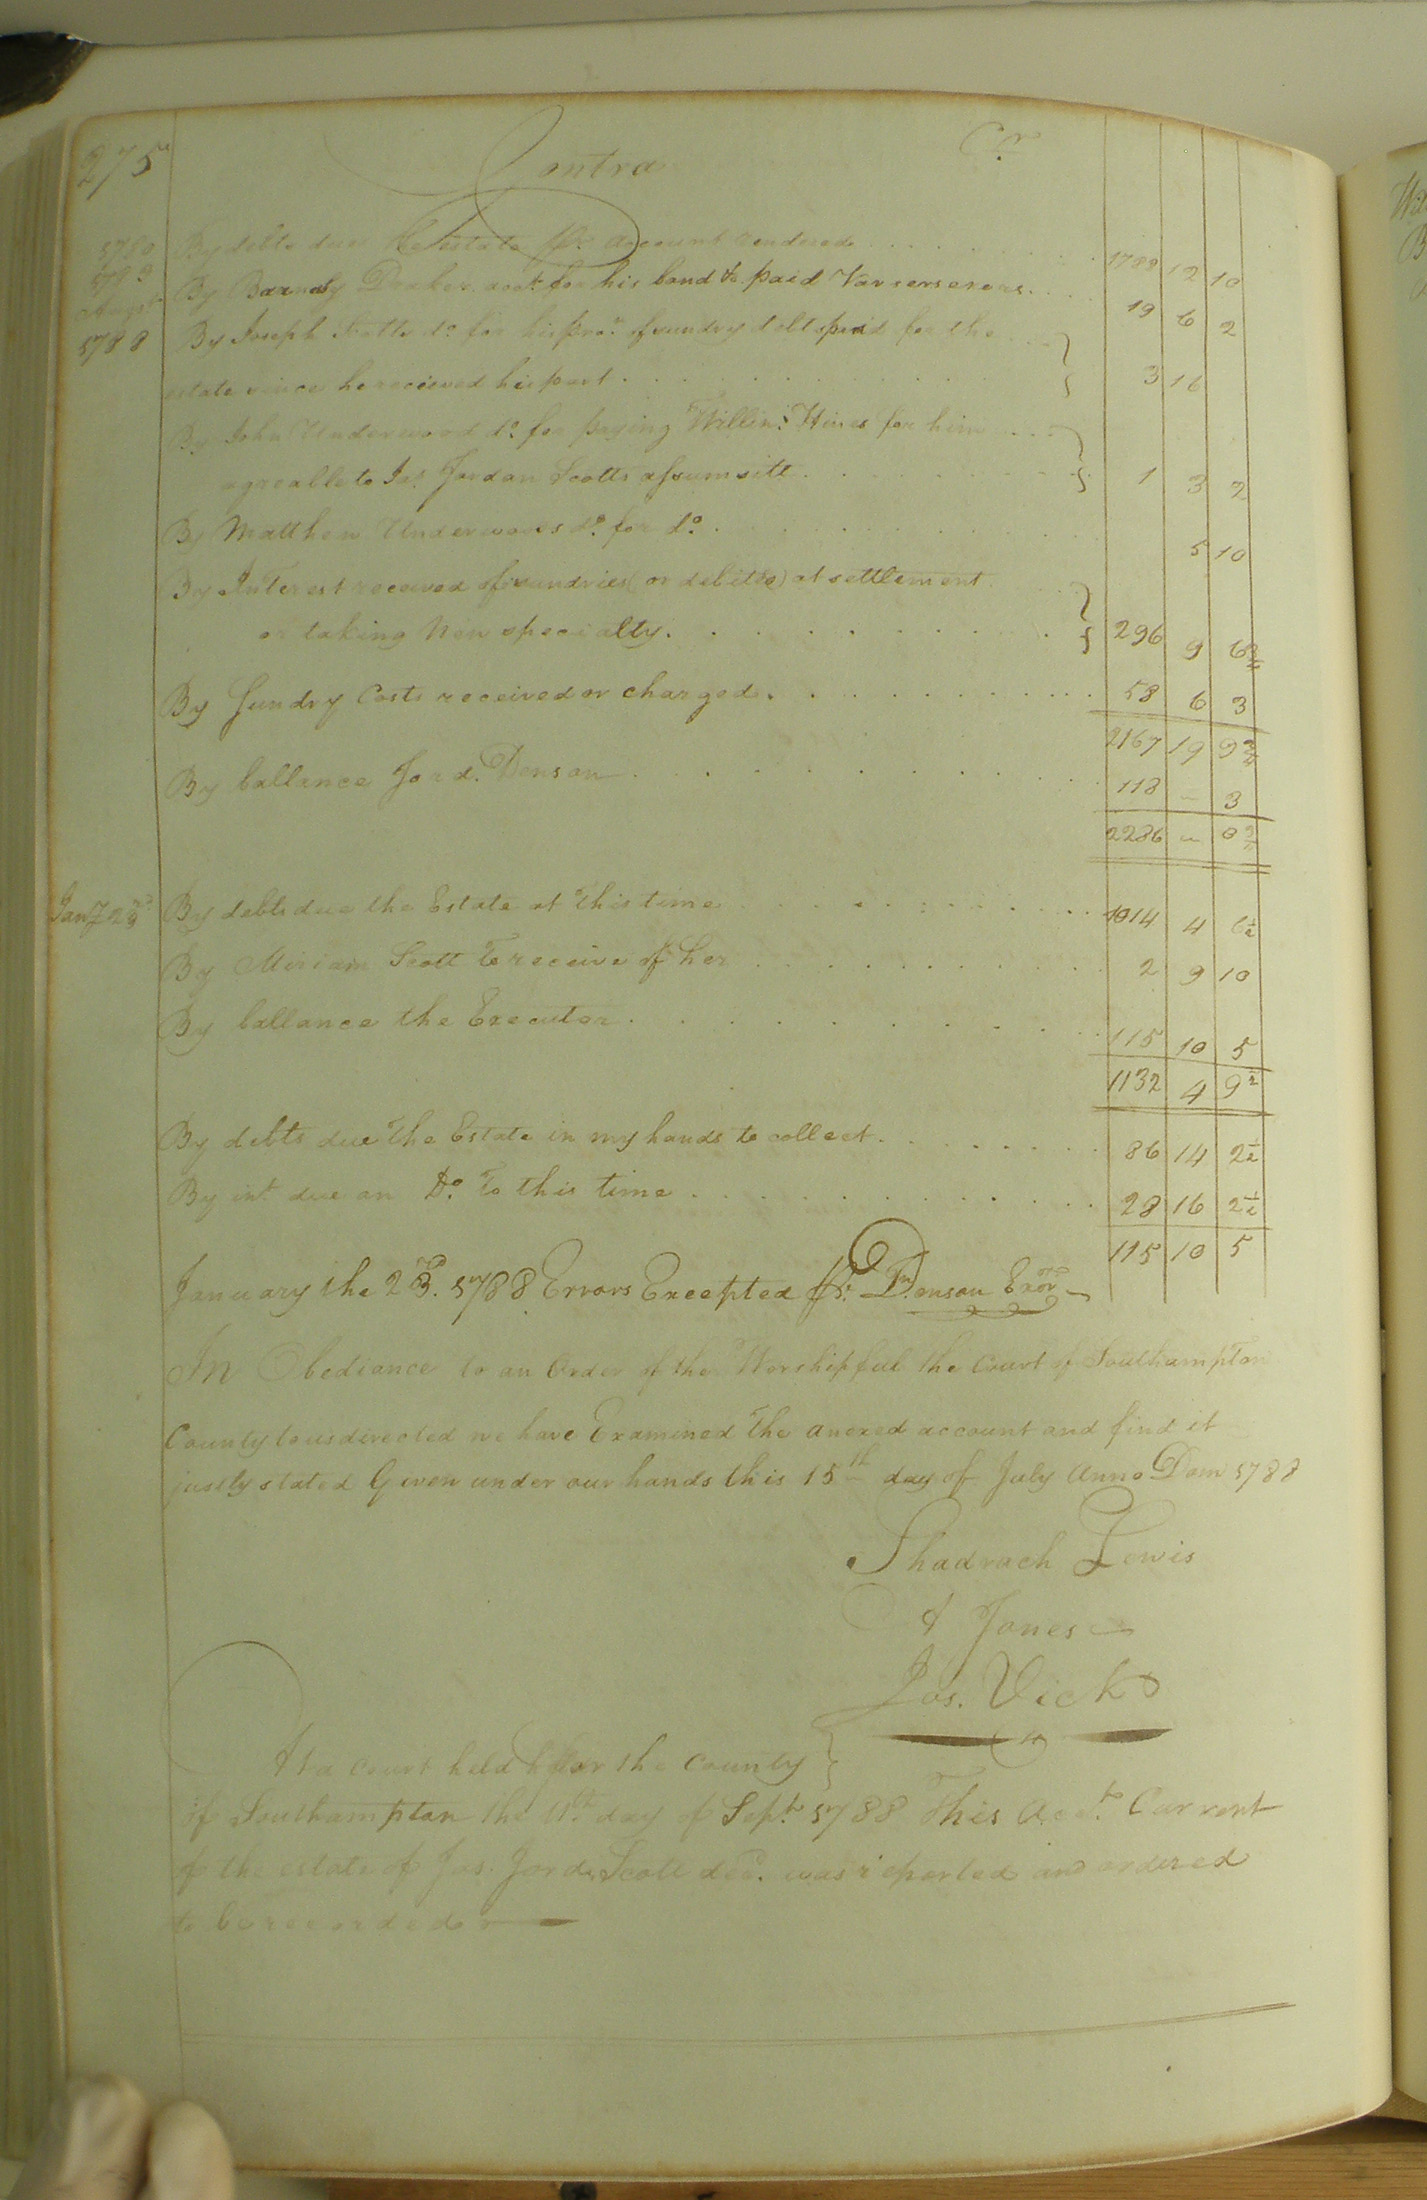 275
Contra Cr.
1780 By debts due the estate pr. account rendered 1788 12 10
By Barnaby Drakes acct. for his bond & paid 19 6 2
August
1788 By Joseph Scotts do. for his pro. of sundry debts paid for the
estate since he received his part 3 16
By John Underwood do. for paying Willm. Hines for him
agreable to Jas. Jordan Scotts assumsitt 1 3 2
By Matthew Underwoods do. for do. 5 10
By Interest received of sundries (or debited) at settlement
or taking New specialty. 296 9 6 3/4
By Sundry Costs received or charged. 58 6 3
2167 19 9 3/4
By ballance Jord. Denson 118 - 3
2286 - 0 3/4
Jany 23d By debts due the Estate at this time 1014 4 6 1/2
By Miriam Scott to receive of her 2 9 10
By ballance the Executor 115 10 5
1132 4 9 1/2
By debts due the Estate in my hands to collect 86 14 2 1/2
By int. due on Do. to this time 28 16 2 1/2
115 10 5
January the 23d. 1788 Errors Excepted Pr. Jn. Denson Exor.
In Obediance to an Order of the Worshipful the Court of Southampton
County to us directed we have Examined the anexed account and find it
justly stated Given under our hands this 15th day of July Anno Dom 1788
Shadrach Lewis
A Jones
Jos. Vick
At a court held for the county
of Southampton the 11th. day of Sept. 1788 This Acct. Current
of the estate of Jas. Jordn. Scott decd. was reported and ordered
to be recorded